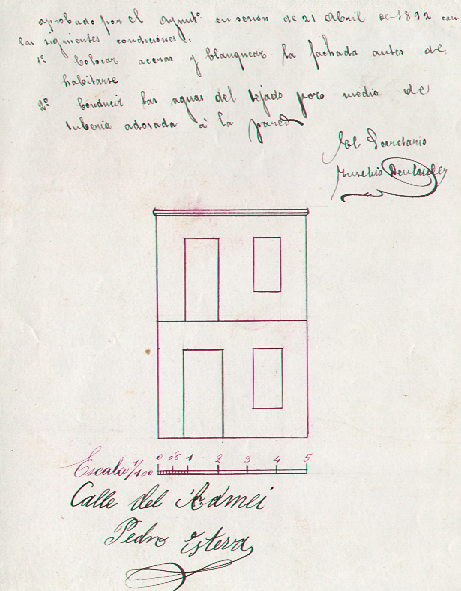 aprobado por el Ayunt.º en sesion de 21 Abril de 1892 con
las siguientes condiciones:
1ª Colocar aceras y blanquear la fachada antes de
habitarse
2ª Conducir las aguas del tejado por medio de
tuberia adosada á la pared
El Secretario
Eusebio
Escala 1/100 0 1 2 3 4 5
Calle del
Pedro Esteva